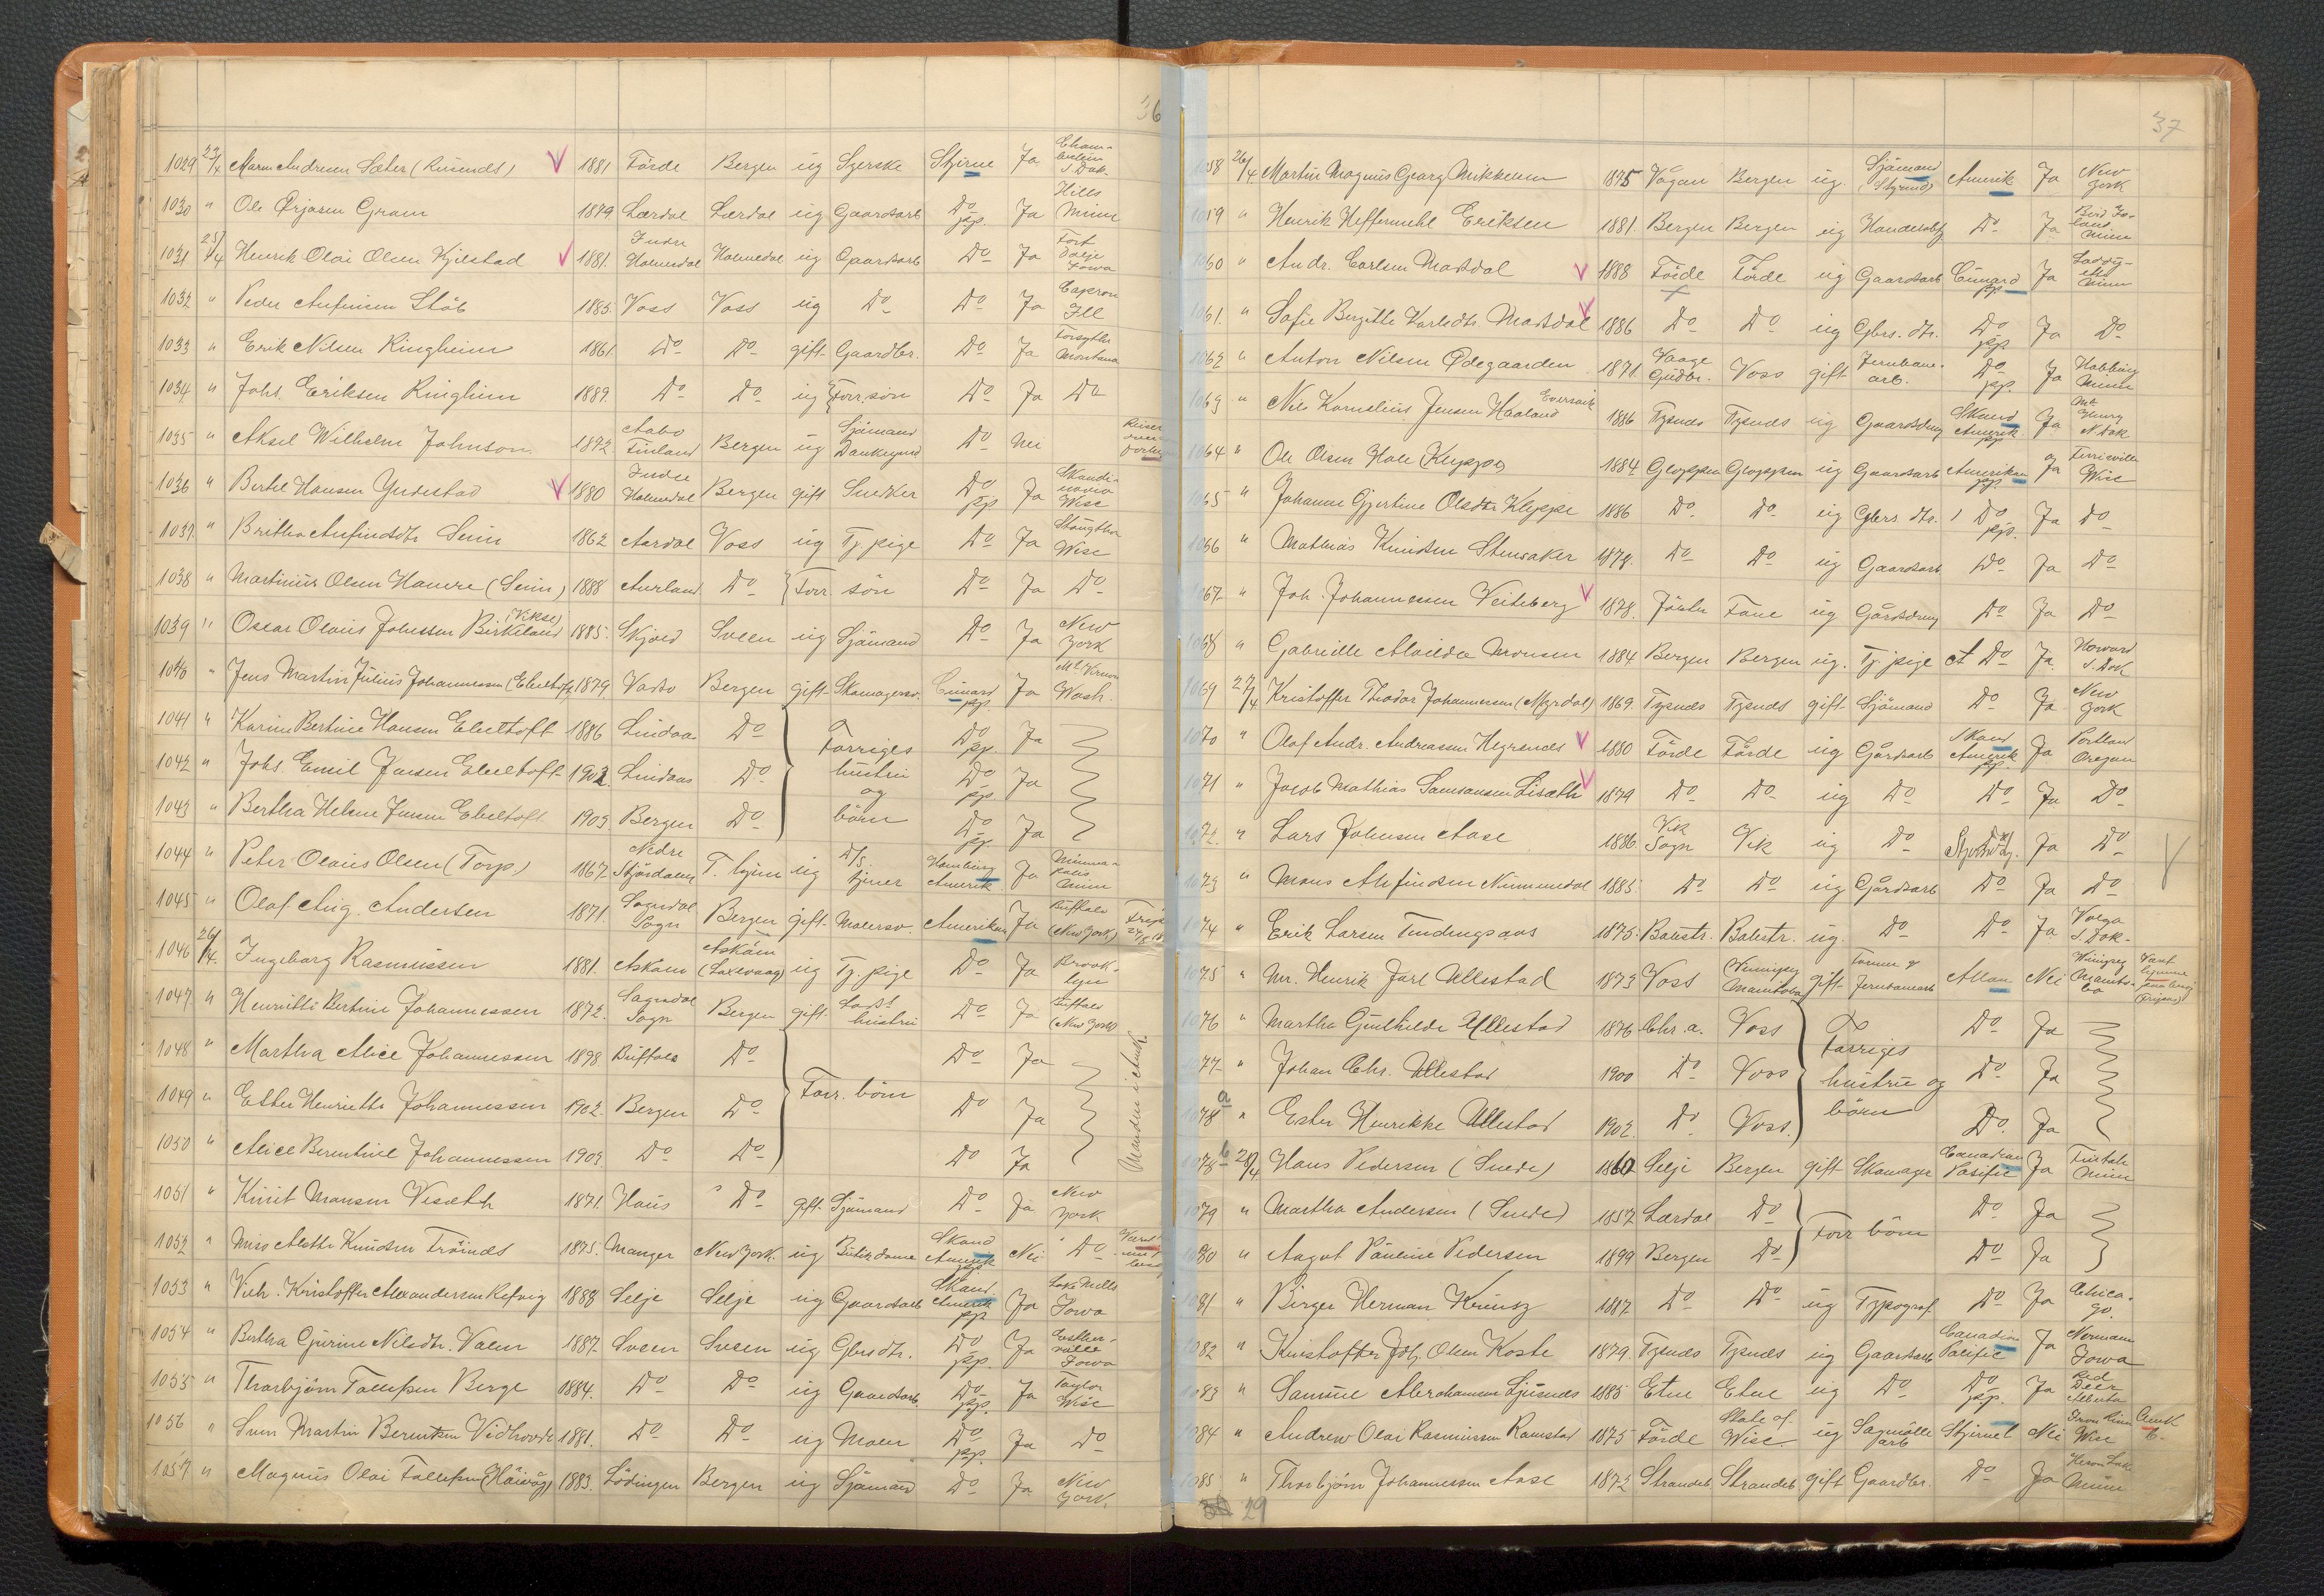 36
1029 23/4 Maren Andresen Sæter (Kusends) V 1881 Förde Bergen ug Syerske Stjerne Ja Cham- berlain S. Dak.
1030 " Ole Ørjasen Gram 1879 Lærdal Lærdal ug Gaardsarb Do pp. Ja Hills Minn
1031 25/4 Henrik Olai Olsen Kjilstad V 1881. Indre Holmedal Holmedal ug Gaardsarb Do Ja Fort Iowa
1032 " Peder Anfinsen Støb 1885. Voss Voss ug Do Do Ja Capron Ill
1033 " Erik Nilsen Ringheim 1861 Do Do gift Gaardbr. Do Ja Forsythe Montana
1034 " Johs. Eriksen Ringheim 1889. Do Do ug Forr. søn Do Ja Do
1035 " Aksel Wilhelm Johnson 1872 Aabo Finland Bergen ug Sjömand Do Nei
1036 " Bertel Hansen Yndestad V 1880 Indre Holmedal Bergen gift Snekker Do pp Ja Skandi- navia Wisc
1037 " Britha Anfindsdtr Seim 1862 Aardal Voss ug Tj. pige Do Ja Stougthon Wisc
1038 " Martinus Olsen Hauere (Seim) 1888 Aurland Do Forr. søn Do Ja Do
1039 " Oscar Olaus Johnsen Birkeland (Vikse) 1885. Skjold Sveen ug Sjömand Do Ja New York
1040 " Jens Martin Julius Johannessen (Ebeltoft) 1879 Vadsö Bergen gift Skomagersv. Cunard pp. Ja Mt Vernon Wash.
1041 " Karine Bertine Hansen Ebeltoft 1886 Lindaas Do Forriges hustru og börn Do pp. Ja
1042 " Johs. Emil Jensen Ebeltoft 1902. Lindaas Do Do pp. Ja
1043 " Bertha Helene Jensen Ebeltoft 1903 Bergen Do Do pp. Ja
1044 " Peter Olaus Olsen (Torp) 1867 Nedre Stjördalen T. hjem ug D/S. tjener Hamburg Amerik. Ja Minnea- polis Minn
1045 " Olaf Aug. Andersen 1871. Sogndal Sogn Bergen gift Malersv. Amerikan Ja Buffalo (New York)
1046 26/4. Ingeborg Rasmussen 1881. Askøen Askøen (Laxevaag) ug Tj. pige Do Ja Brook- lyn
1047 " Henritte Bertine Johannessen 1872. Sogndal Sogn Bergen gift hustru Do Ja Buffalo (New York)
1048 " Martha Alice Johannessen 1898 Buffalo Do Forr. börn Do Ja
1049 " Esther Henriette Johannessen 1902. Bergen Do Do Ja
1050 " Alice Berentine Johannessen 1903. Do Do Do Ja
Manden i Amk
1051 " Knut Monsen Visæth 1871. Haus Do gift. Sjömand Do Ja New York
1052 " Miss Alethe Knudsen Tröinds 1875. Manger New York. ug Butikdame Skand Amerik pp. Nei Do
1053 " Vilh. Kristoffer Alexandersen Refvig 1888 Selje Selje ug Gaardsarb Skand. Amerik pp Ja Lake Mills Iowa
1054 " Bertha Gjurine Nilsdtr. Valen 1887. Sveen Sveen ug Gbrsdtr. Do pp. Ja Esther- ville Iowa
1055 " Thorbjörn Tollefsen Berge 1884. Do Do ug Gaardsarb. Do pp. Ja Taylor Wisc
1056 " Sven Martin Berentsen Vidhovde 1881. Do Do ug Maler Do pp. Ja Do
1057 " Magnus Olai Tollefsen (Haavåg) 1883. Lödingen Bergen ug Sjömand Do Ja New York.
37
1058 26/4 Martin Magnus Georg Mikkelsen 1875 Vågan Bergen ug. Sjömand (Styrmd) Amerik Ja New York
1059 " Henrik Heffermehl Eriksen 1881. Bergen Bergen ug Handelsbtj Do Ja Bird Is- land Minn
1060 " Andr. Carlsen Mosdal V 1888 Förde Förde ug Gaardsarb Cunard pp. Ja Minn
1061. " Sofie Bergitte Karlsdtr. Mosdal V 1886 Do Do ug Gbrs. dtr. Do pp Ja Do
1062 " Anton Nilsen Ødegaarden 1871. Vaage Gudbr. Voss gift Jernbane- arb. Do pp. Ja Minn
1063 " Nils Kornelius Jensen Haaland 1886 Tysnes Tysnes ug Gaardsdreng Skand Amerik pp Ja Mt Henry N Dak
1064 " Ole Olsen Hole Kleppe 1884 Gloppen Gloppen ug Gaardsarb Amerikan pp. Ja Wisc
1065 " Johanne Gjertine Olsdtr Kleppe 1886 Do Do ug Gbrs. dtr. Do pp. Ja Do
1066 " Mathias Knudsen Stensaker 1878. Do Do ug Gaardsarb. Do Ja Do
1067 " Joh. Johannessen Veiteberg V 1878. Jölster Fane ug Gårdsdreng Do Ja Do
1068 " Gabrielle Alvilda Monsen 1884 Bergen Bergen ug. Tj. pige Do Ja. Howard S. Dak
1069 27/4 Kristoffer Theodor Johannessen (Myrdal) 1869. Tysnes Tysnes gift Sjömand Do Ja New York
1070 " Olaf Andr. Andreassen Hegrends V 1880 Förde Förde ug Gårdsarb Skand Amerik pp. Ja Portland Oregon
1071 " Jacob Mathias Samsonsen Lisæth V 1879 Do Do ug Do Do Ja Do
1072. " Lars Johnsen Aase 1886. Vik Sogn Vik ug Do Ja Do V
1073 " Mons Anfindsen Nummedal 1885. Do Do ug Gårdsarb Do Ja Do
1074 " Erik Larsen Tendingsaas 1875. Balestr. Balestr. ug. Do Do Ja Volga S. Dak.
1075 " Mr. Henrik Jarl Ullestad 1873 Voss Winnipeg Manitoba gift Farmer & Jernbanearb Allan Nei Winnipeg Manito- ba
1076 " Martha Gunhilde Ullestad 1876. Chr. a. Voss Forriges hustru og börn Do Ja
1077 " Johan Chr. Ullestad 1900 Do Voss Do Ja
1078 a " Ester Henrikke Ullestad 1902. Do Voss. Do. Ja
1078 b 28/4 Hans Pedersen (Snede) 1860 Selje Bergen gift Skomager Canadian Pasific Ja Minn
1079 " Martha Andersen (Snede) 1857. Lærdal Do Forr börn Do Ja
1080 " Aagot Pauline Pedersen 1899 Bergen Do Do Ja
1081 " Birger Herman Kreusz 1887. Do Do ug Typograf. Do Ja Chica- go.
1082 " Kristoffer Joh. Olsen Koste 1879. Tysnes Tysnes ug Gaardsarb Canadian Pasific Ja Iowa
1083 " Samuel Abrahamsen Ljusnes 1885 Etne Etne ug Do Do pp. Ja Red Deer Alberta
1084 " Andrew Olai Rasmussen Ramstad 1875 Förde State of Wisc. ug Sagmölle arb Stjernel Nei Iron River Wisc
1085 " Thorbjörn Johannessen Aase 1872 Strandeb Strandeb gift Gaardbr. Do Ja Heron Lake Minn
29